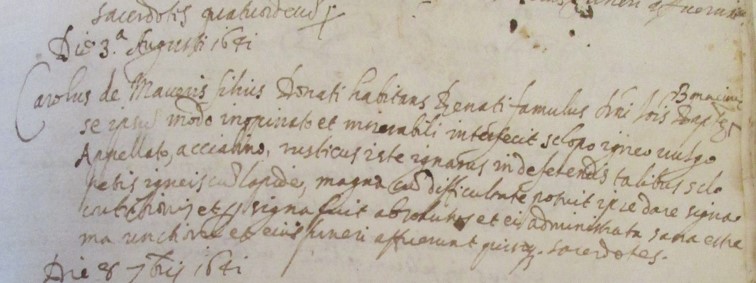 sacerdotis quatuordecim
Die 3.a Augusti 1641
Carolus de Maveris filius Donati habitans Renati famulus Dni Jois Bapt
se ipsum modo inopinato et mirabili interfecit sclopo igneo vulgo
Appellato, accialino, rusticus iste ignarus in deferendis talibus sclo
petis igneis cu lapide, magna cu difficultate potuit ipse dare signa
contritionis et signa fuit absolutus et ei administrata sacra extre
ma unctione et eius funeri affuerunt quinq. sacerdotes.
Die 8 7bris 1641